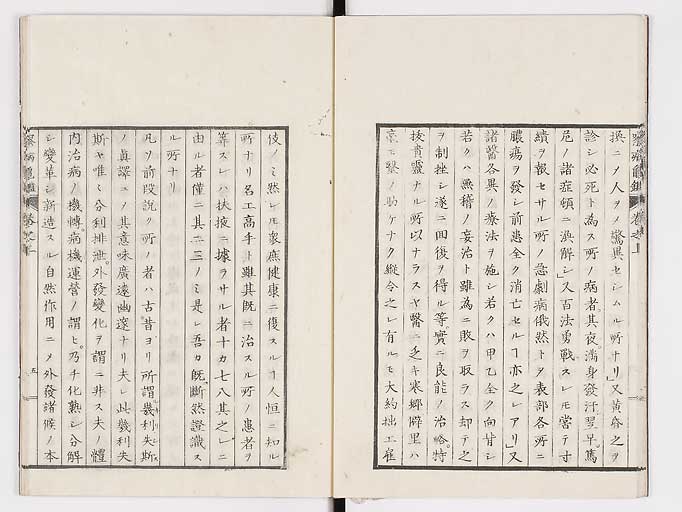 換ニノ人ヲメ驚異セシムル所ナリ」又黄昏之ヲ
診シ必死ト為ス所ノ病者其夜滿身發汗翌早
尼ノ諸症頓ニ渙解シ」又百法勇戰スレモ嘗テ寸
績ヲ報セサル所ノ急劇病俄然トメ表部各所ニ
膿瘍ヲ發シ前患全ク消亡セルヿ亦之レアリ」又
諸醫各異ノ療法ヲ施シ若クハ甲乙全ク向背シ
若クハ無稽ノ妄治ト雖為ニ敗ヲ取ラス却テ之
ヲ制挫シ遂ニ回復ヲ得ル等實ニ良能ノ治
ナルノ所以ナラスヤ醫ニ乏キ寒郷僻里ハ
毫モ醫ノ助ケナク縱令之レ有ルモ大約拙工
伎ノミ然レモ衆庶健康ニ復スルヿ人恒ニ知ル
所ナリ名工高手ト雖其既ニ治スル所ノ患者ヲ
筭スレハ扶掖ニ據ラサル者十カ七八其之レニ
由ル者僅ニ其二三ノミ是レ吾カ既ニ斷然證識ス
ル所ナリ
凡ソ前段説ク所ノ者ハ古昔ヨリ所謂幾利失斯
ノ眞譯ニメ其意味廣遠幽邃ナリ夫レ此幾利失
斯ヤ唯ニ分利排泄外發變化ヲ謂ニ非ス夫ノ體
内治病ノ機轉病機運營ノ謂ヒ乃チ化熟シ分解
シ變革シ新造スル自然作用ニメ外發諸候ノ本
五